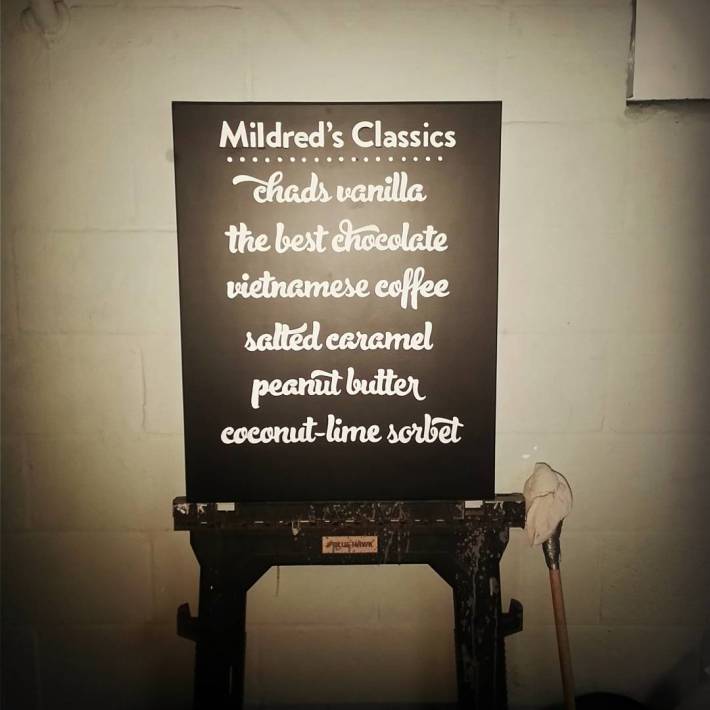 Mildred's Classics
chads vanilla
the best chocolate
vietnamese coffee
salted caramel
peanut butter
coconut-lime sorbet
BLUE HAWK